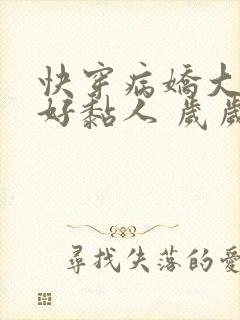 快穿病嬌大
好黏人 歲歲
尋找失落的愛